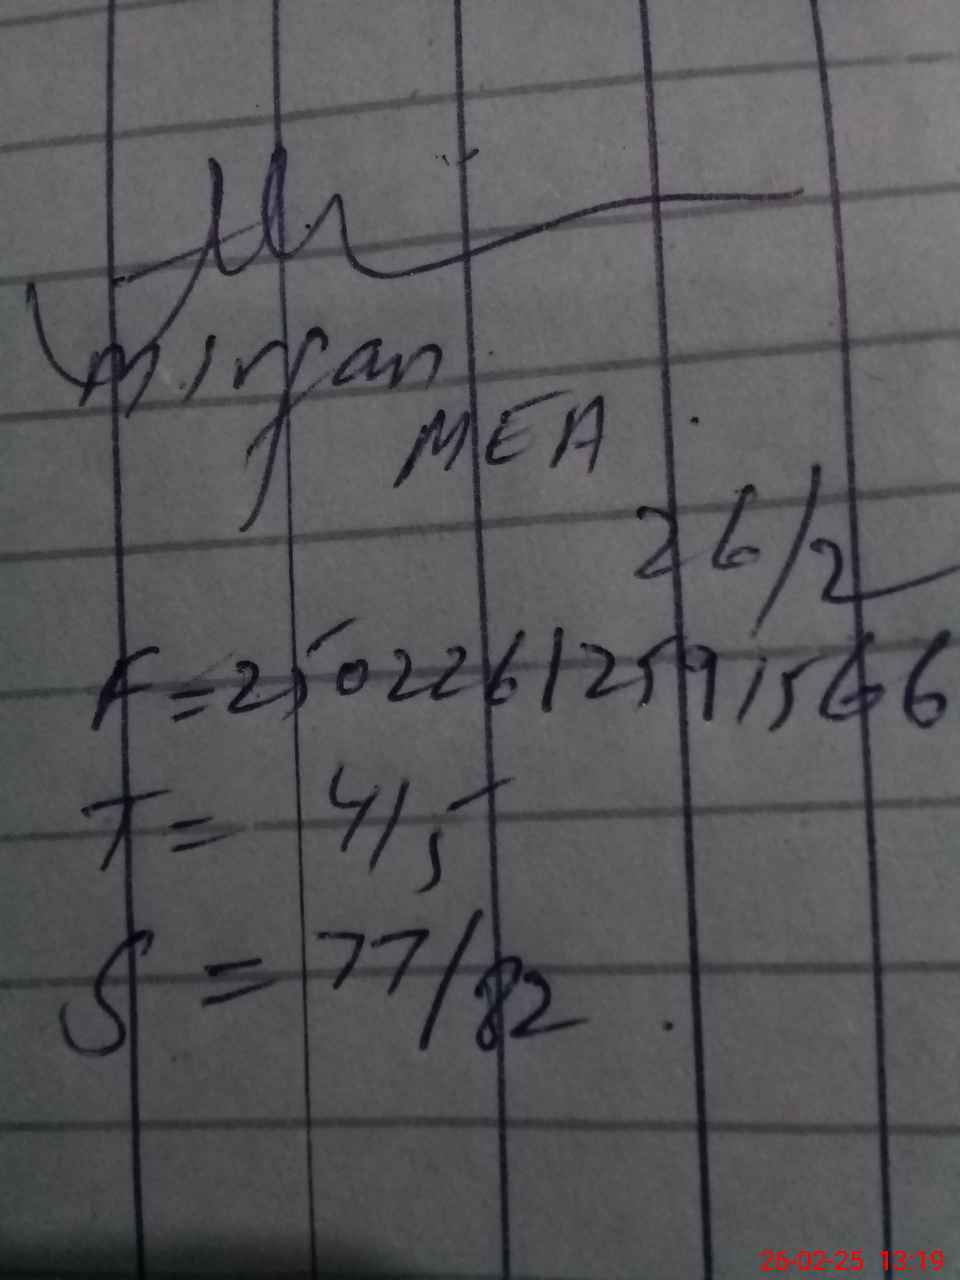 Mirjan
MEA
26/2
F=25022612591566
T= 41,5
S = 77/82
26-02-25 13:19